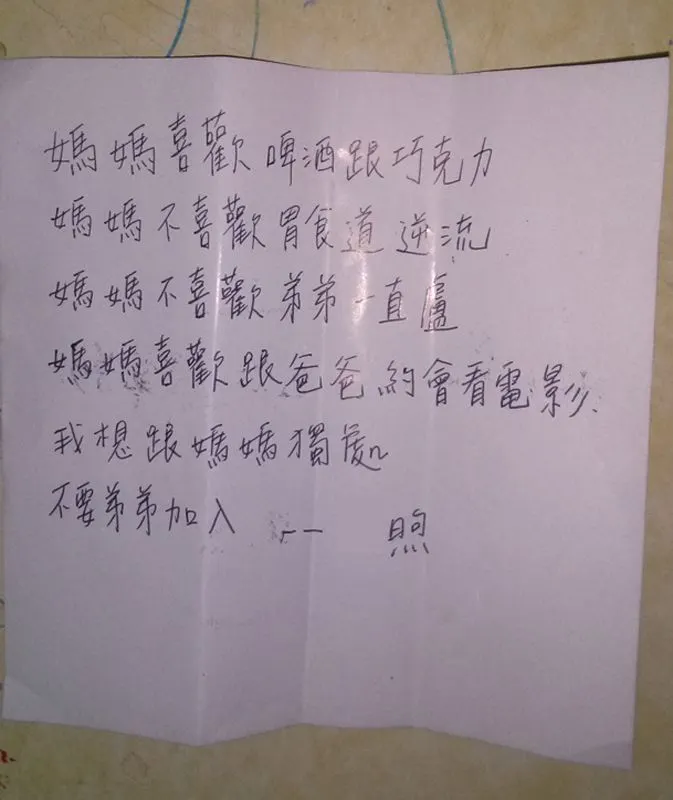 媽媽喜歡啤酒跟巧克力
媽媽不喜歡胃食道逆流
媽媽不喜歡弟弟一直盧
媽媽喜歡跟爸爸約會看電影、
我想跟媽媽獨處
不要弟弟加入 -- 照